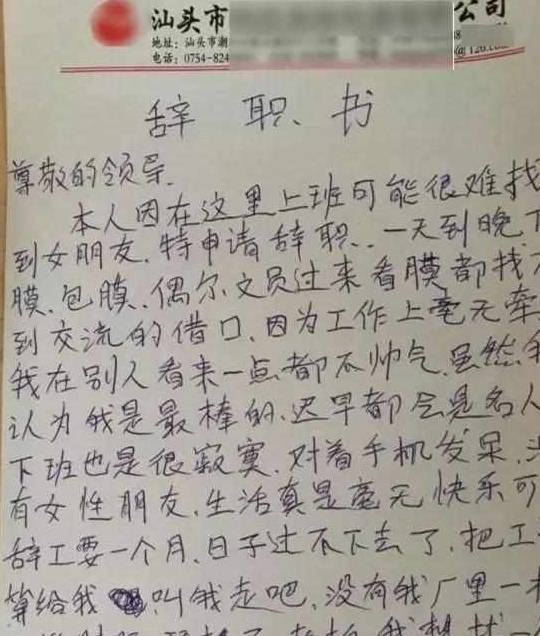 汕头市 公司
地址：汕头市潮
电话：0754-824
辞职书
尊敬的领导.
本人因在这里上班可能很难找
到女朋友.特申请辞职..一天到晚下
膜、包膜、偶尔文员过来看膜都找不
到交流的借口.因为工作上毫无牵
我在别人看来一点都不帅气.虽然我
认为我是最棒的.迟早都会是名人
下班也是很寂寞.对着手机发呆.没
有女性朋友.生活真是毫无快乐可
辞工要一个月.日子过不下去了.把工
算给我 叫我走吧.没有我厂里一